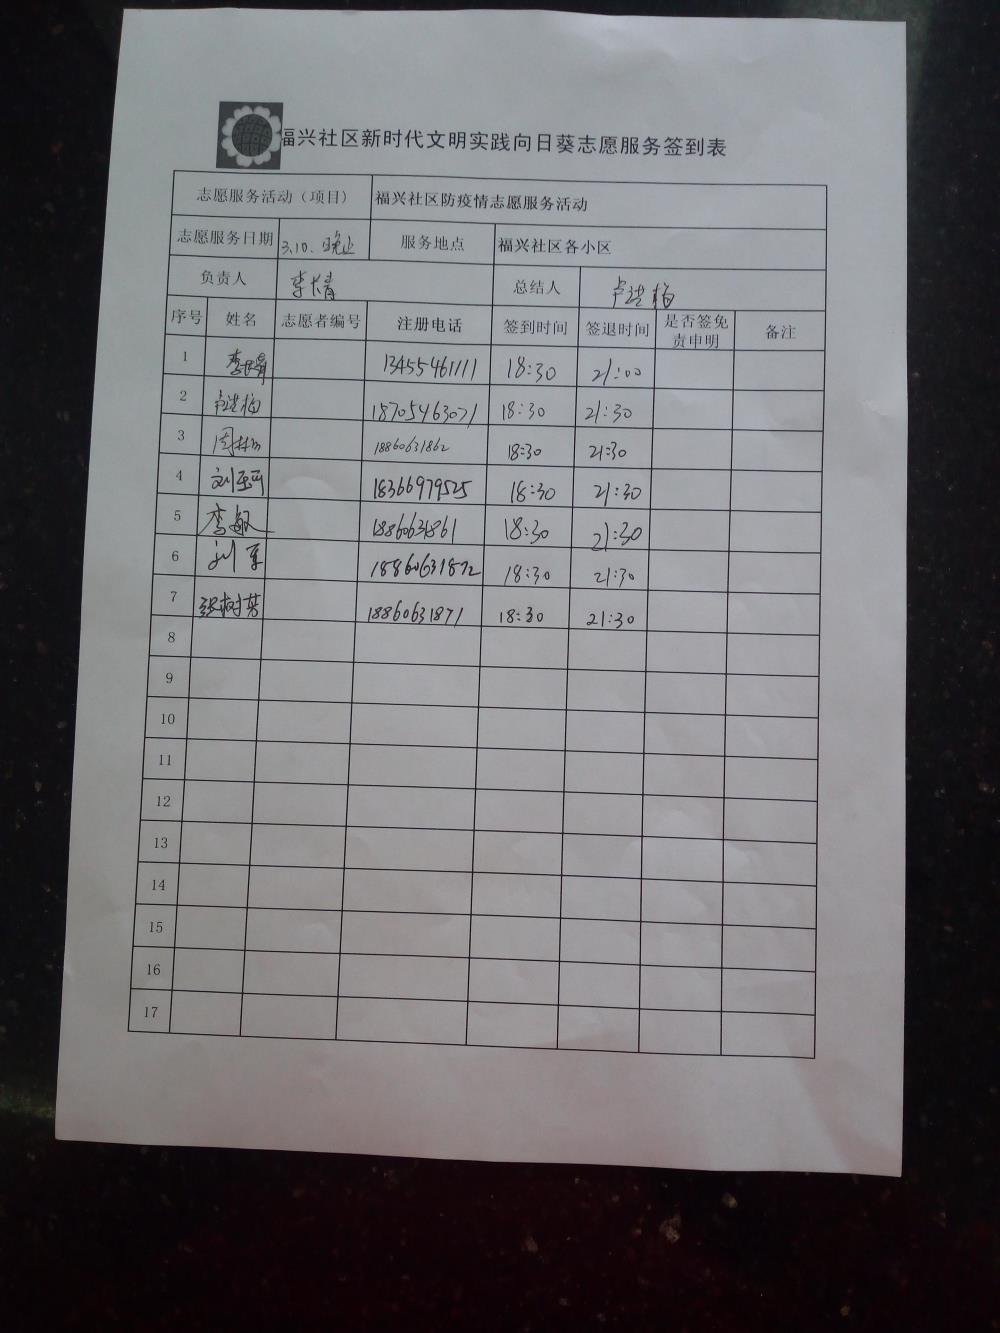 福兴社区新时代文明实践向日葵志愿服务签到表
志愿服务活动（项目） 福兴社区防疫情志愿服务活动
志愿服务日期 3.10. 晚上 服务地点 福兴社区各小区
负责人 李长青 总结人 卢洪梅
序号 姓名 志愿者编号 注册电话 签到时间 签退时间 是否签免责申明 备注
1 13455461111 18:30 21:00
2 卢洪梅 18705463071 18:30 21:30
3 18860631862 18:30 21:30
4 18366979525 18:30 21:30
5 李敏 18860631861 18:30 21:30
6 刘军 18860631872 18:30 21:30
7 张树芬 18860631871 18:30 21:30
8
9
10
11
12
13
14
15
16
17